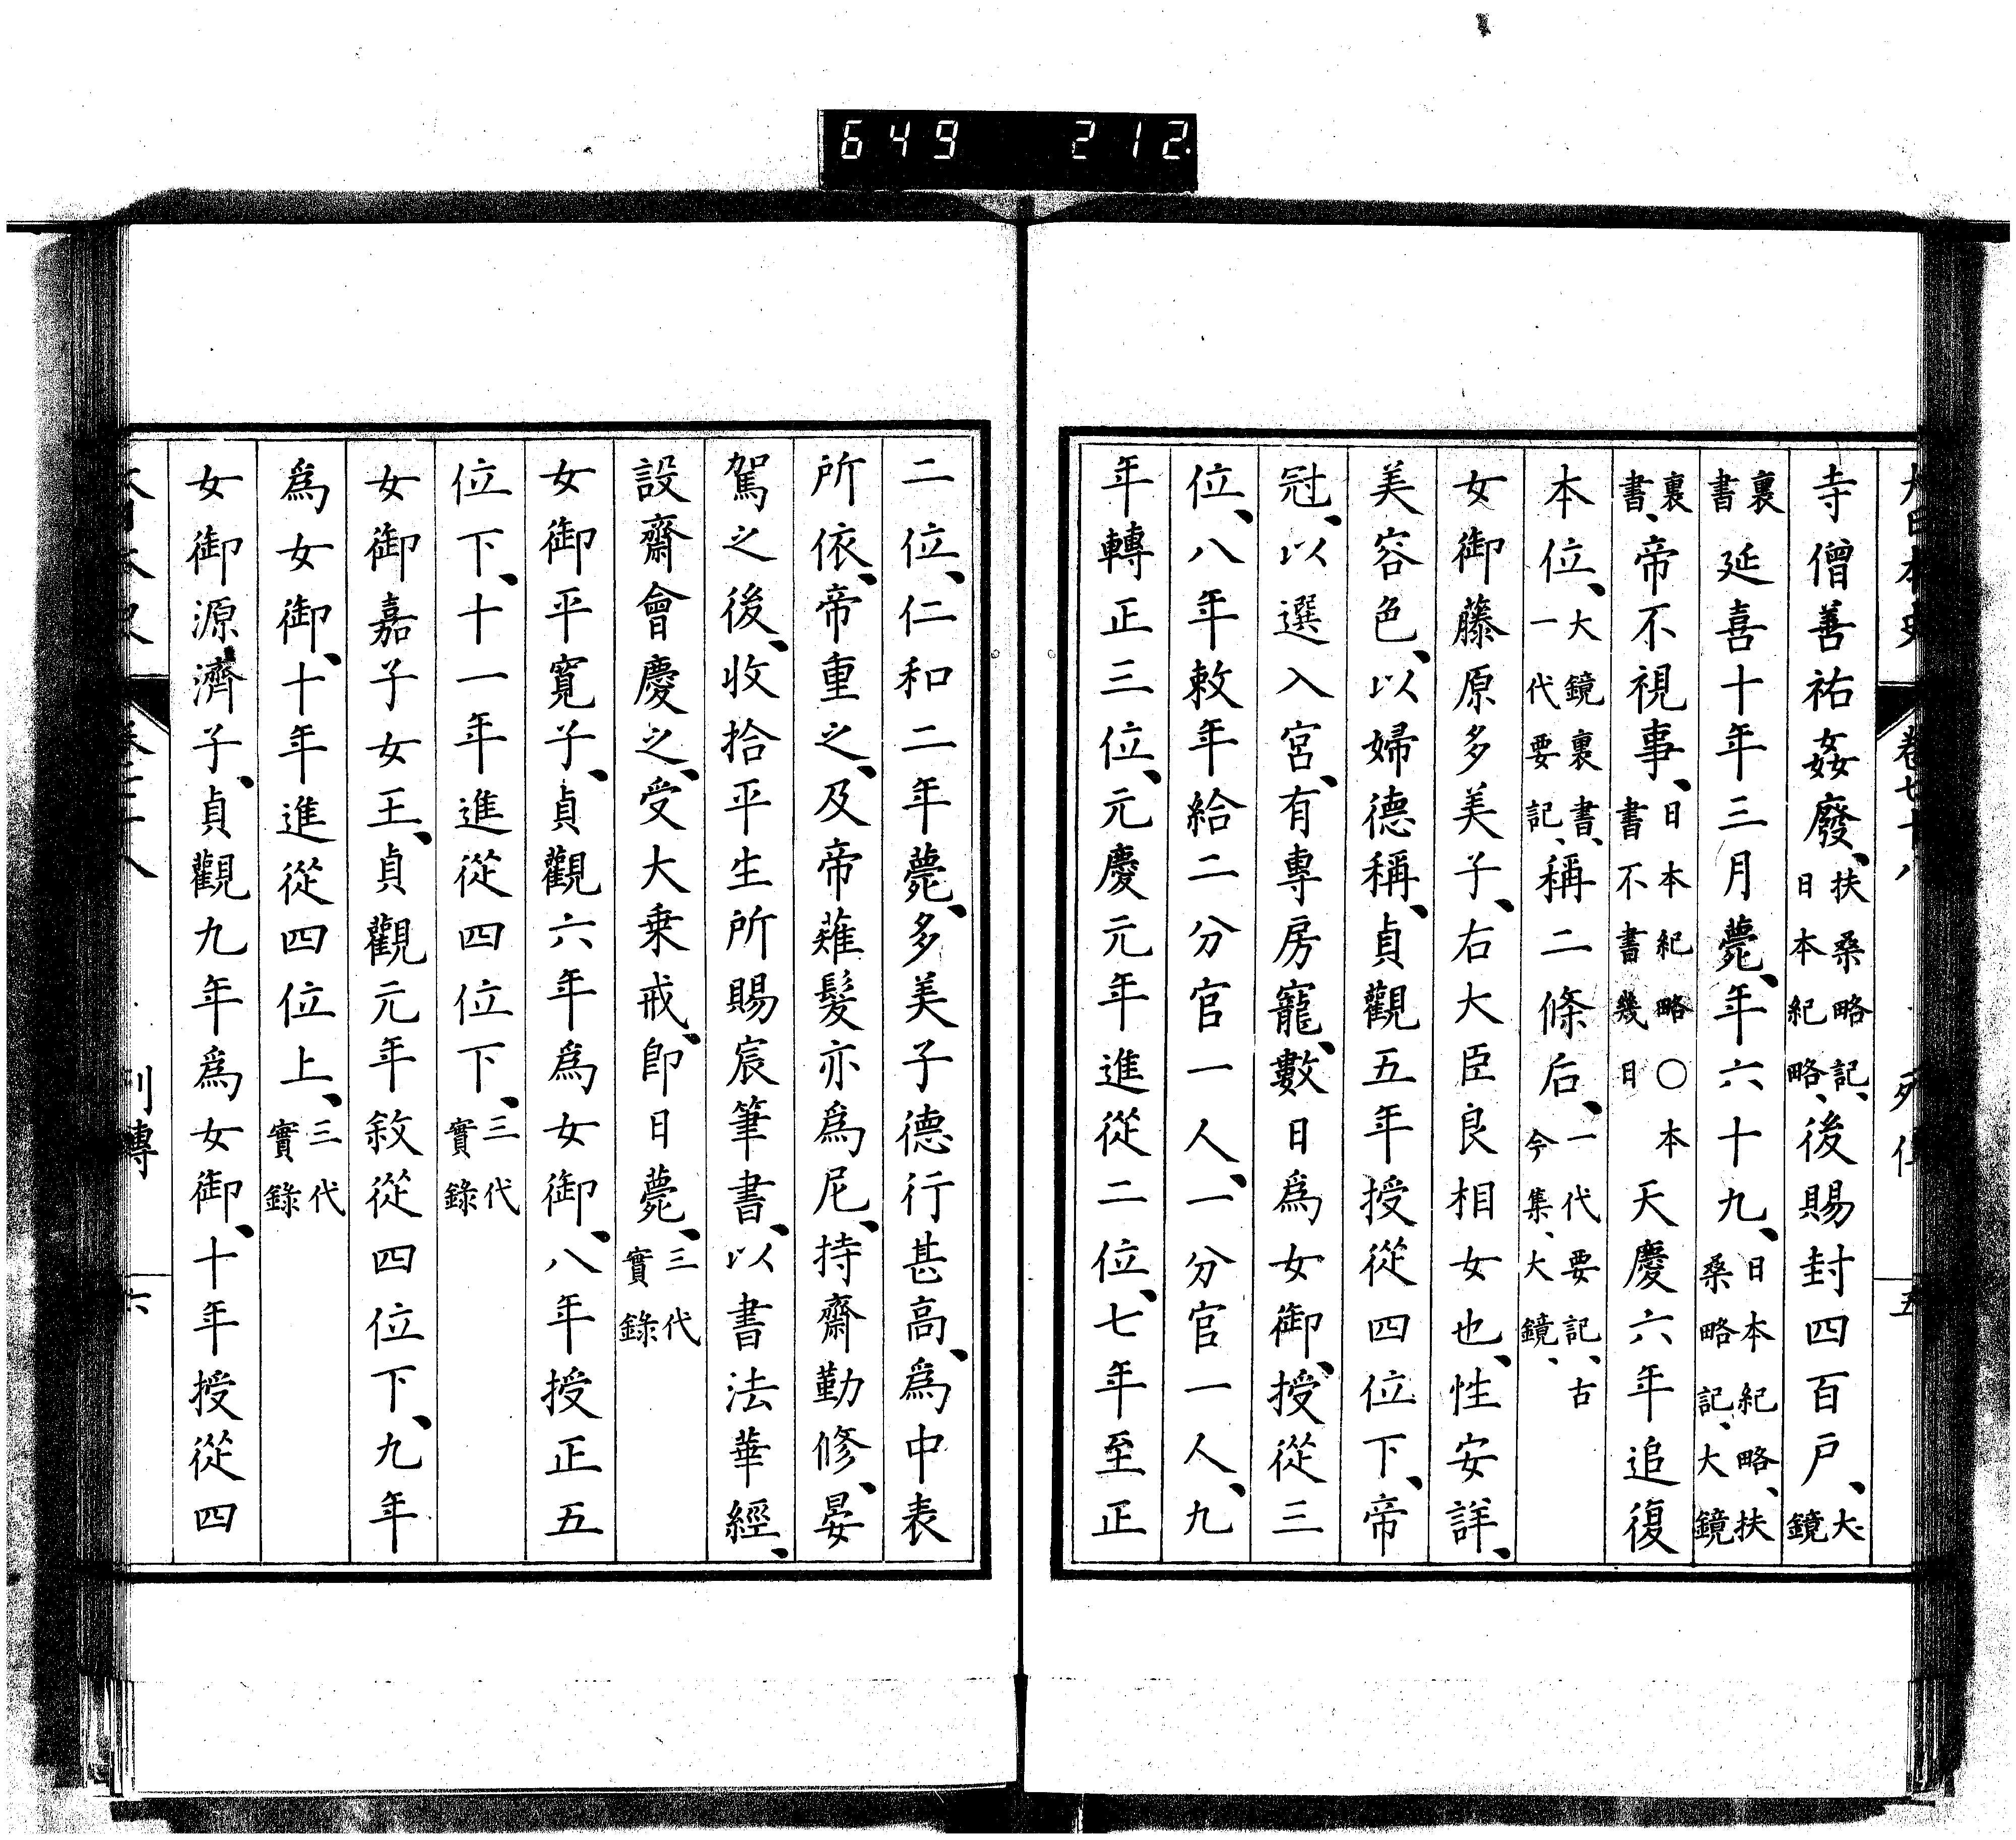 649 212
寺僧善祐姦廢、扶桑略記、日本紀略、後賜封四百戶、大鏡
裏書延喜十年三月薨、年六十九、日本紀略、扶桑略記、大鏡
裏書、帝不視事、日本紀略○本書不書幾日天慶六年追復
本位、大鏡裏書、一代要記、稱二條后、一代要記、古今集、大鏡、
女御藤原多美子、右大臣良相女也、性安詳、
美容色、以婦德稱、貞觀五年授從四位下、帝
冠、以選入宮、有專房寵、數日爲女御、授從三
位、八年敕年給二分官一人、一分官一人、九
年轉正三位、元慶元年進從二位、七年至正
二位、仁和二年薨、多美子德行甚高、爲中表
所依、帝重之、及帝薙髮亦爲尼、持齋勤修、晏
駕之後、收拾平生所賜宸筆書、以書法華經、
設齋會慶之、受大乘戒、卽日薨、三代實錄
女御平寬子、貞觀六年爲女御、八年授正五
位下、十一年進從四位下、三代實錄
女御嘉子女王、貞觀元年敘從四位下、九年
爲女御、十年進從四位上、三代實錄
女御源濟子、貞觀九年爲女御、十年授從四